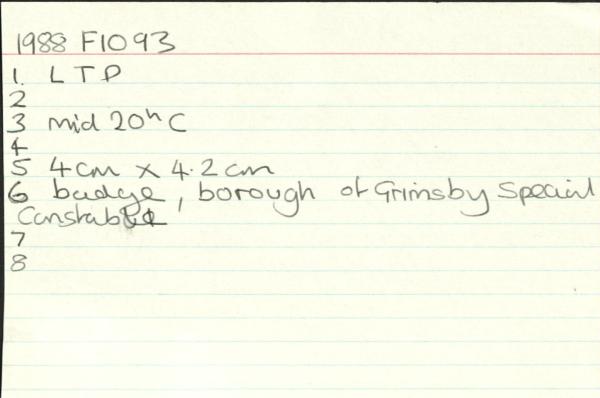 1988 F1093
1 LTP
2
3 mid 20th C
4
5 4cm x 4.2cm
6 badge, borough of Grimsby Special
Constable
7
8